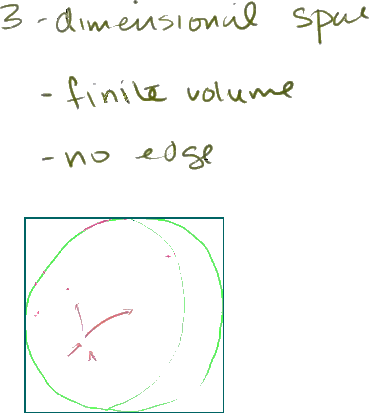 3-dimensional space
- finite volume
- no edge
A